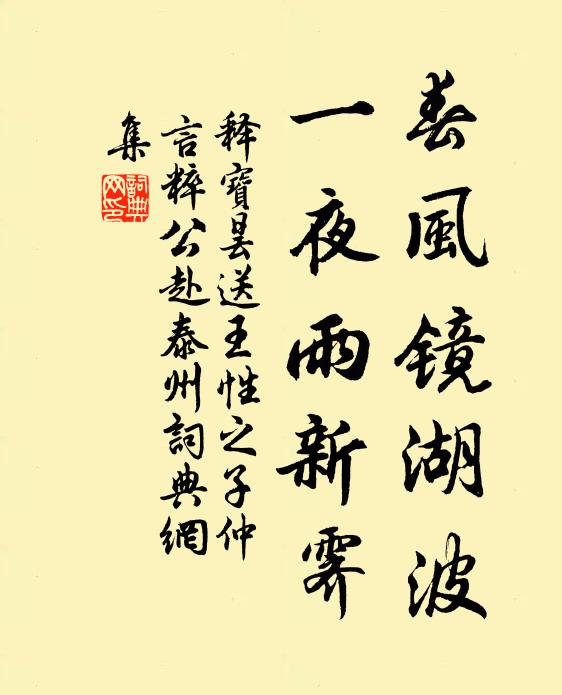 春風镜湖波
一夜雨新霽
释寶昙送王性之子仲
言粹公赴泰州詞典網
集
詞典網印